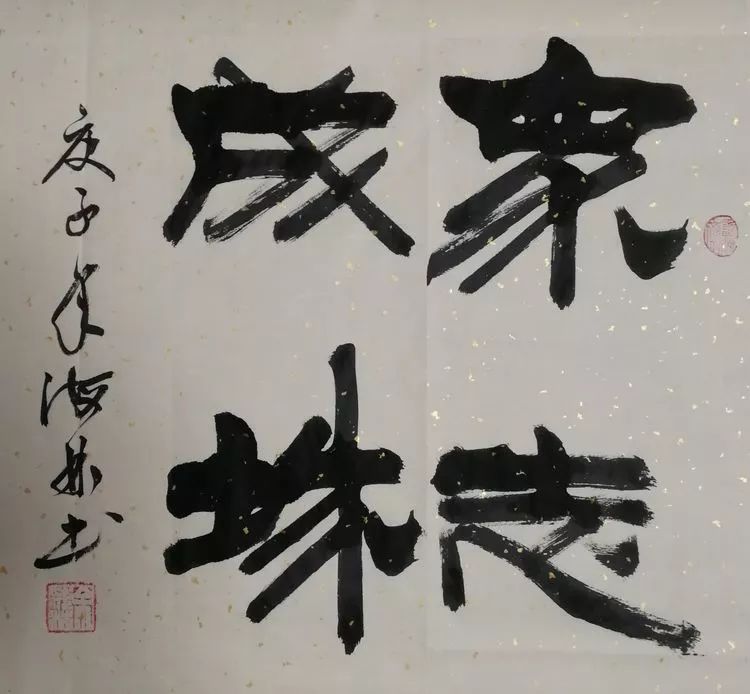 衆志
成城
庚子年海书